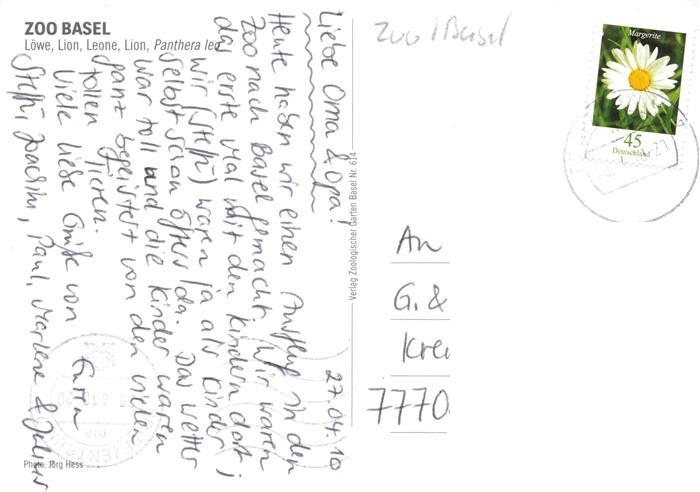 ZOO BASEL
Löwe, Lion, Leone, Lion, Panthera leo
27.04.10
Liebe Oma & Opa!
Heute haben wir einen Ausflug in den
Zoo nach Basel gemacht. Wir waren
das erste Mal mit den Kindern dort;
wir (Steffi) waren ja als Kinder
selbst schon öfters da. Das Wetter
war toll und die Kinder waren
ganz begeistert von den vielen
tollen Tieren.
Viele liebe Grüße von Euren
Steffi, Joachim, Paul, Marlene & Julius
Photo: Jörg Hess
Verlag Zoologischer Garten Basel Nr. 614
Zoo / Basel
Margerite
45
Deutschland
An
G. &
Krei
7770